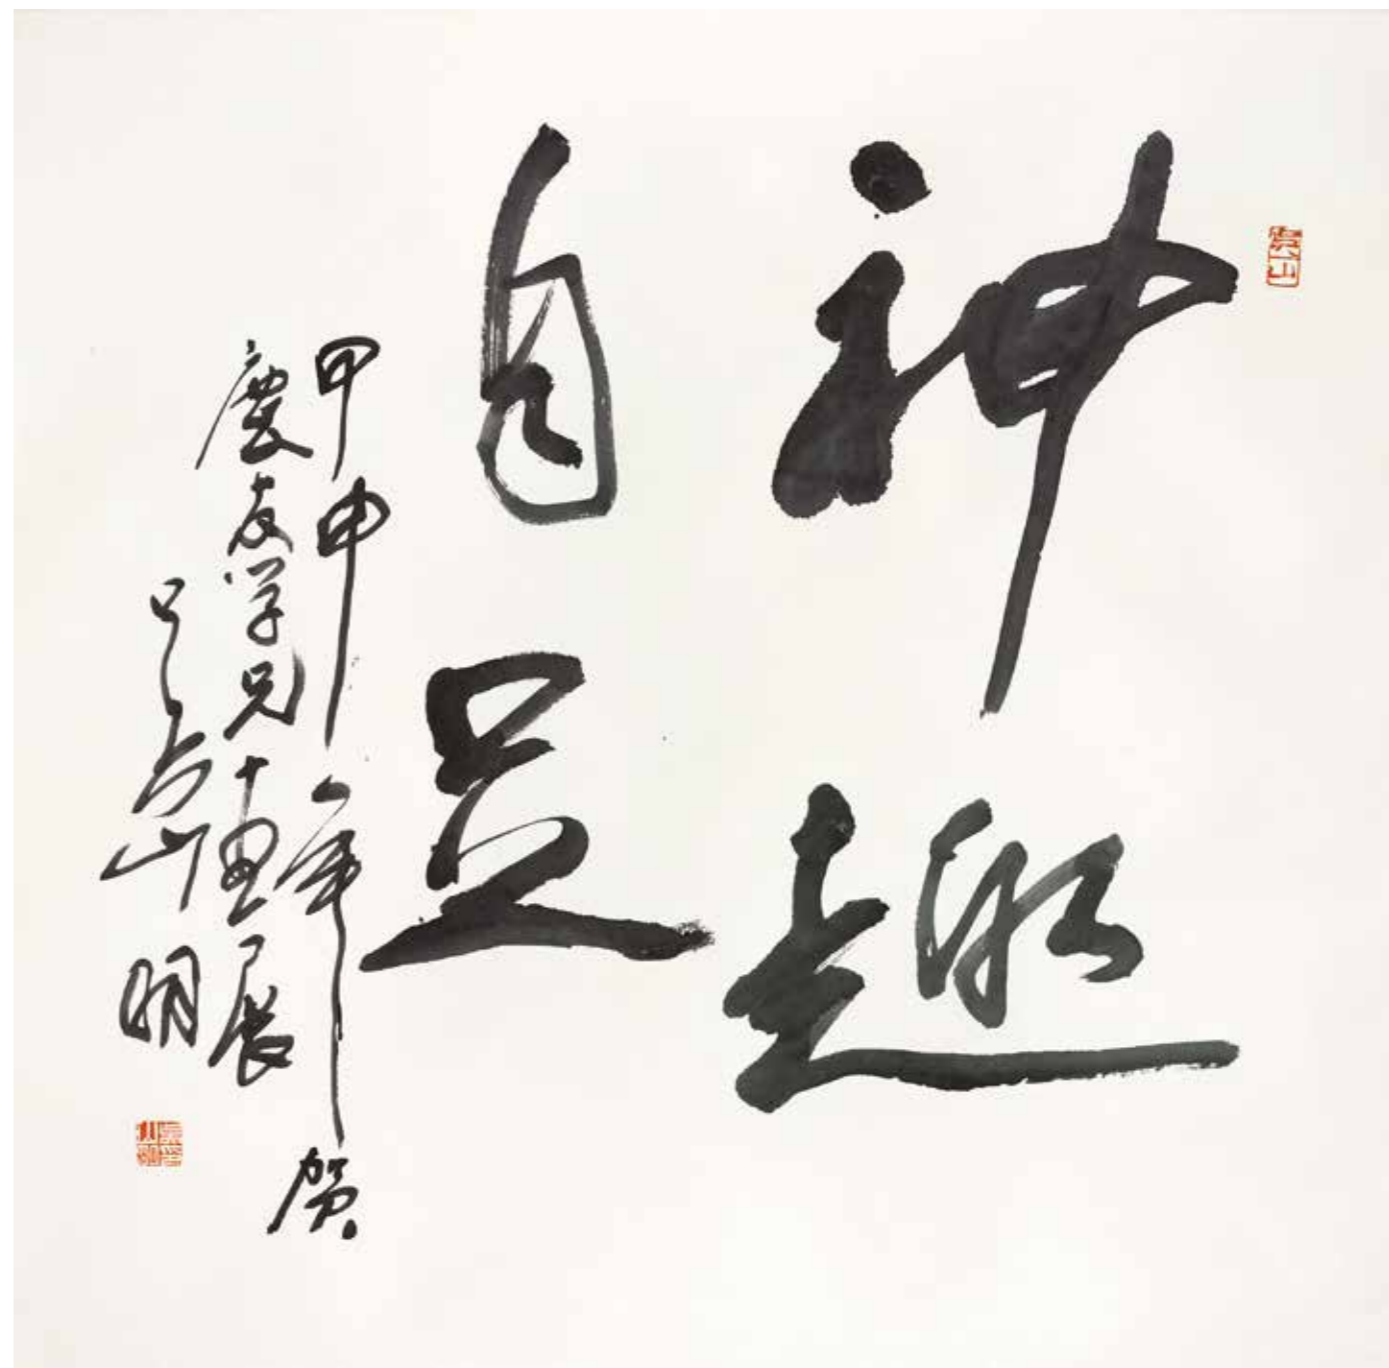 神趣
自足
甲申年贺
慶友学兄畫展
吴山明